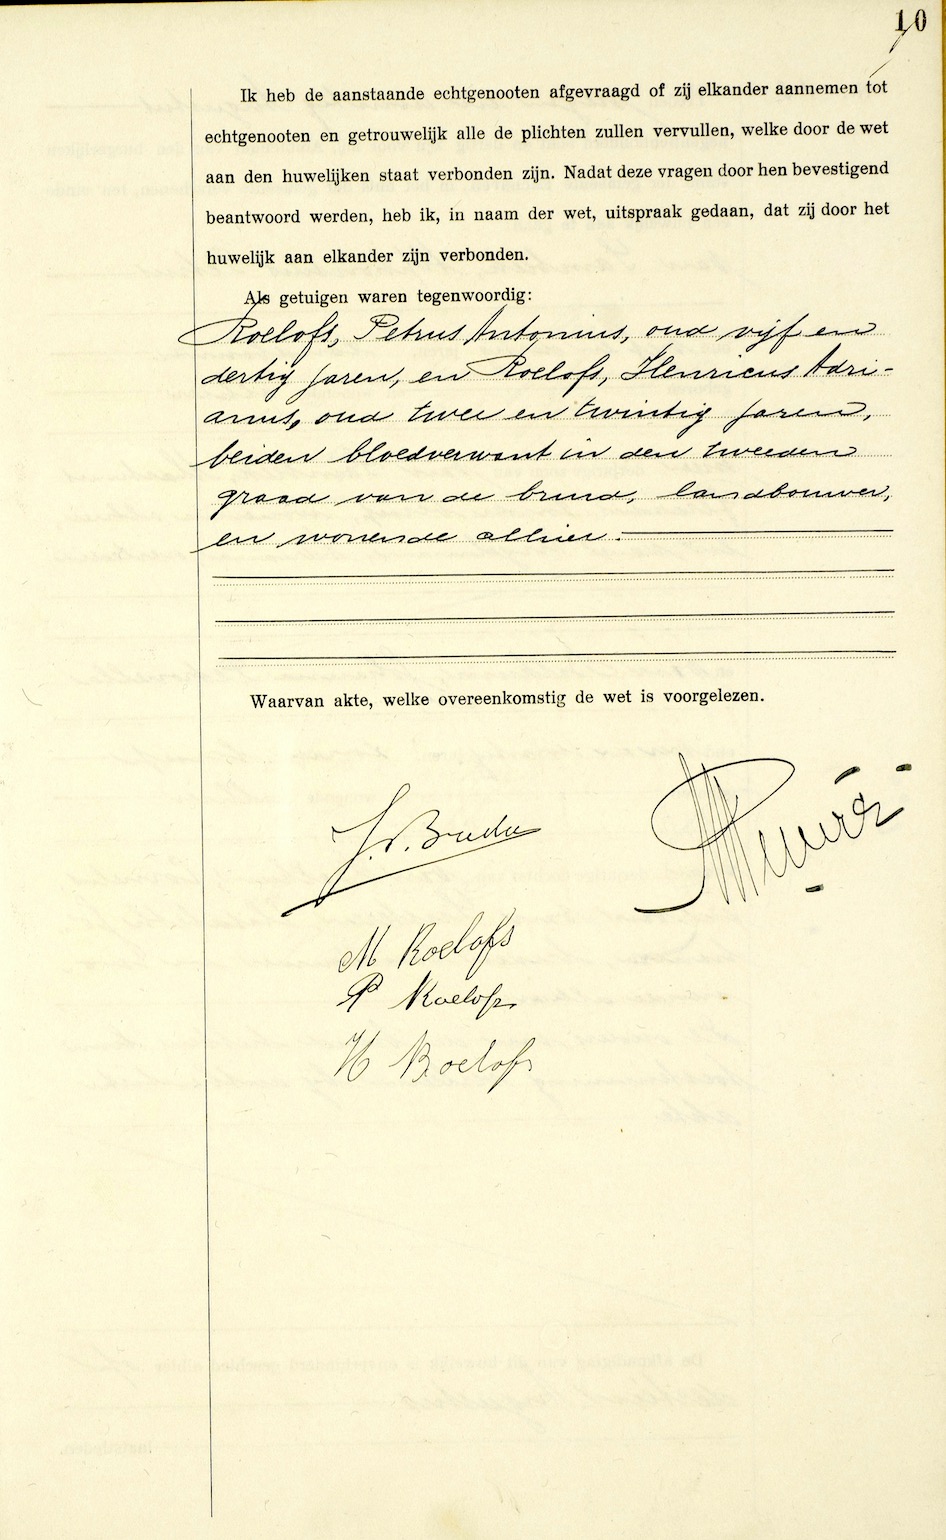 10
Ik heb de aanstaande echtgenooten afgevraagd of zij elkander aannemen tot
echtgenooten en getrouwelijk alle de plichten zullen vervullen, welke door de wet
aan den huwelijken staat verbonden zijn. Nadat deze vragen door hen bevestigend
beantwoord werden, heb ik, in naam der wet, uitspraak gedaan, dat zij door het
huwelijk aan elkander zijn verbonden.
Als getuigen waren tegenwoordig:
Roelofs, Petrus Antonius, oud vijf en
dertig jaren, en Roelofs, Henricus Adri-
anus, oud twee en twintig jaren,
beiden bloedverwant in den tweeden
graad van de bruid, landbouwer,
en wonende alhier.
Waarvan akte, welke overeenkomstig de wet is voorgelezen.
J. v. Breda
M Roelofs
P Roelofs
H Roelofs